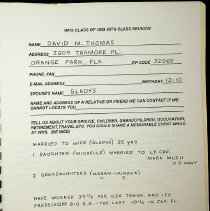 WHS CLASS OF 1959 49TH CLASS REUNION
NAME DAVID M. THOMAS
ADDRESS 2509 TRAMORE PL.
ORANGE PARK, FLA. ZIP 32065
PHONE, FAX
E-MAIL ADDRESS BIRTHDAY 12-10
SPOUSES NAME GLADYS
NAME AND ADDRESS OF A RELATIVE OR FRIEND WE CAN CONTACT IF WE CANNOT LOCATE YOU
TELL US ABOUT YOUR SPOUSE, CHILDREN, GRANDCHILDREN, OCCUPATION, RETIREMENT, TRAVEL, ETC. YOU COULD SHARE A MEMORABLE EVENT WHILE AT WHS. (BE NICE)
MARRIED TO WIFE (GLADYS) 35 YRS
1 DAUGHTER (MICHELLE) MARRIED TO LT. CDR.
MARK
U.S. NAVY
2 GRANDDAUGHTERS (MEGAN
HAVE WORKED 39 1/2 FOR CSX TRANS. AND ITS
PREDECESSOR B&O R.R. - THE LAST 17 1/2 IN JAX FL.